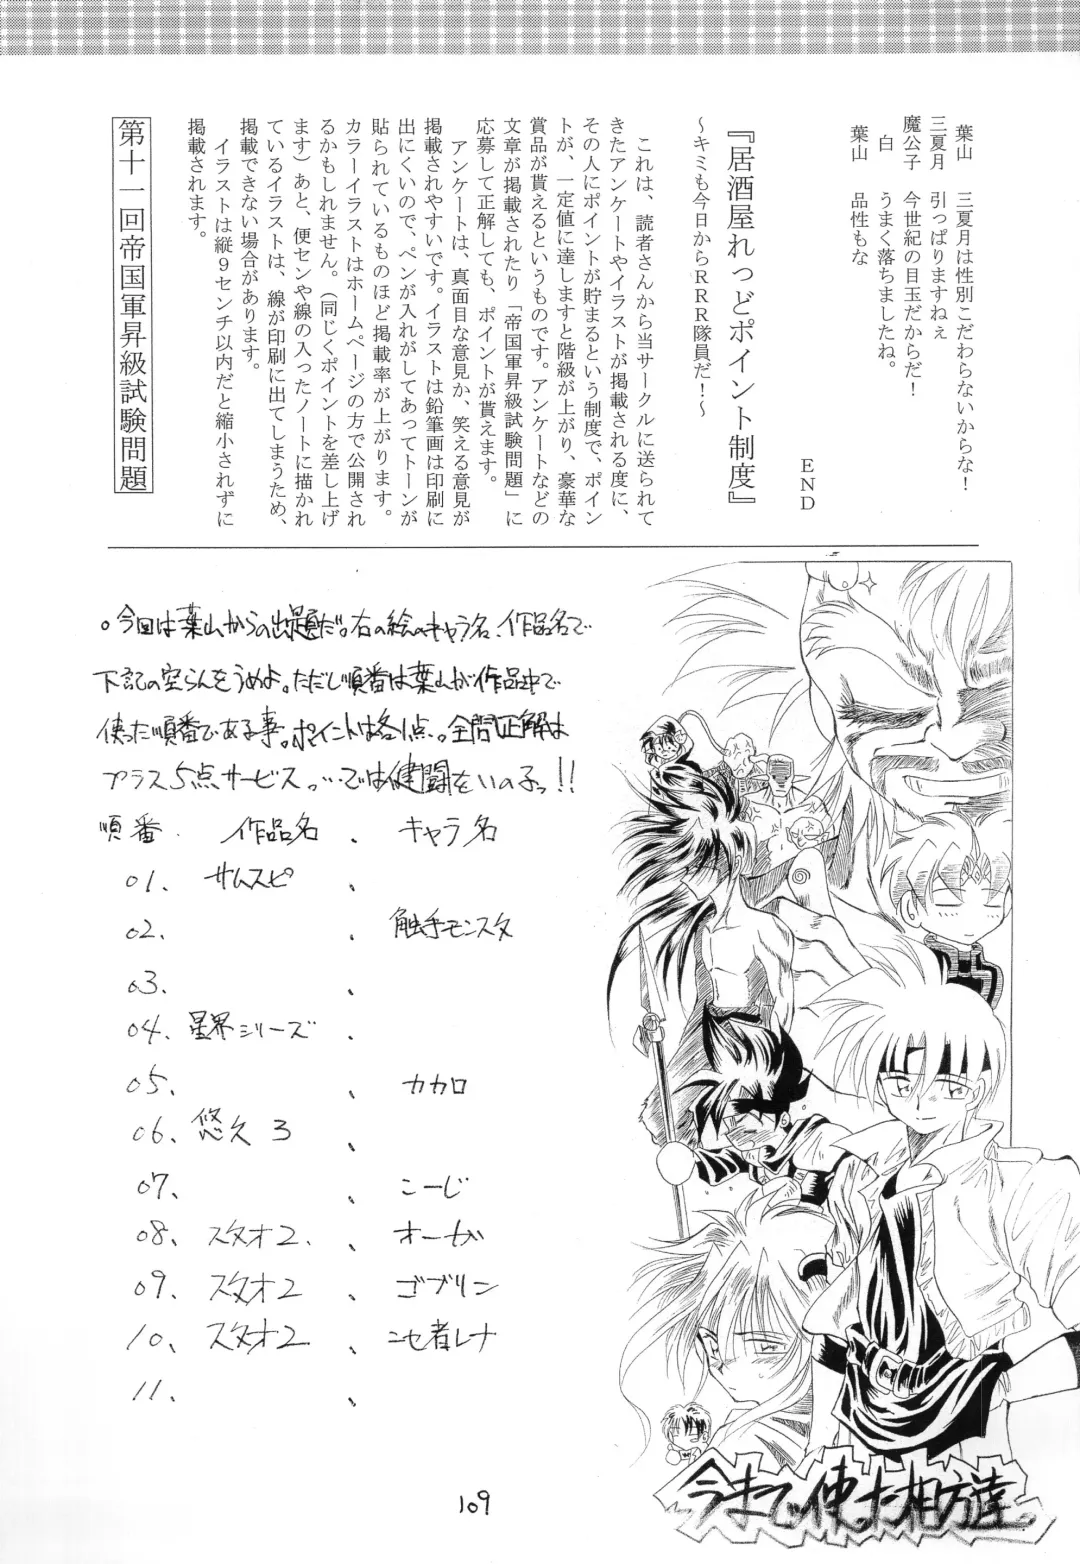 葉山　三夏月は性別こだわらないからな！
三夏月　引っぱりますねぇ
魔公子　今世紀の目玉だからだ！
白　うまく落ちましたね。
葉山　品性もな
END
『居酒屋れっどポイント制度』
～キミも今日からＲＲＲ隊員だ！～
これは、読者さんから当サークルに送られて
きたアンケートやイラストが掲載される度に、
その人にポイントが貯まるという制度で、ポイン
トが、一定値に達しますと階級が上がり、豪華な
賞品が貰えるというものです。アンケートなどの
文章が掲載されたり「帝国軍昇級試験問題」に
応募して正解しても、ポイントが貰えます。
アンケートは、真面目な意見か、笑える意見が
掲載されやすいです。イラストは鉛筆画は印刷に
出にくいので、ペンが入れがしてあってトーンが
貼られているものほど掲載率が上がります。
カラーイラストはホームページの方で公開され
るかもしれません。（同じくポイントを差し上げ
ます）あと、便センや線の入ったノートに描かれ
ているイラストは、線が印刷に出てしまうため、
掲載できない場合があります。
イラストは縦９センチ以内だと縮小されずに
掲載されます。
第十一回帝国軍昇級試験問題
。今回は葉山からの出題だ。右の絵のキャラ名、作品名で
下記の空らんをうめよ。ただし順番は葉山が作品中で
使った順番である事。ポイントは各1点。全問正解は
プラス5点サービス。…では健闘をいのるっ!!
順番　作品名　、　キャラ名
01、　サムスピ　、
02、　　、　触手モンスタ
03、　　、
04、星界シリーズ　、
05、　　、　カカロ
06、悠久3　、
07、　　、　こーじ
08、スタオ2、　、　オーガ
09、スタオ2　、　ゴブリン
10、スタオ2　、　ニセ者レナ
11、　　、
今まで使った相方達
109